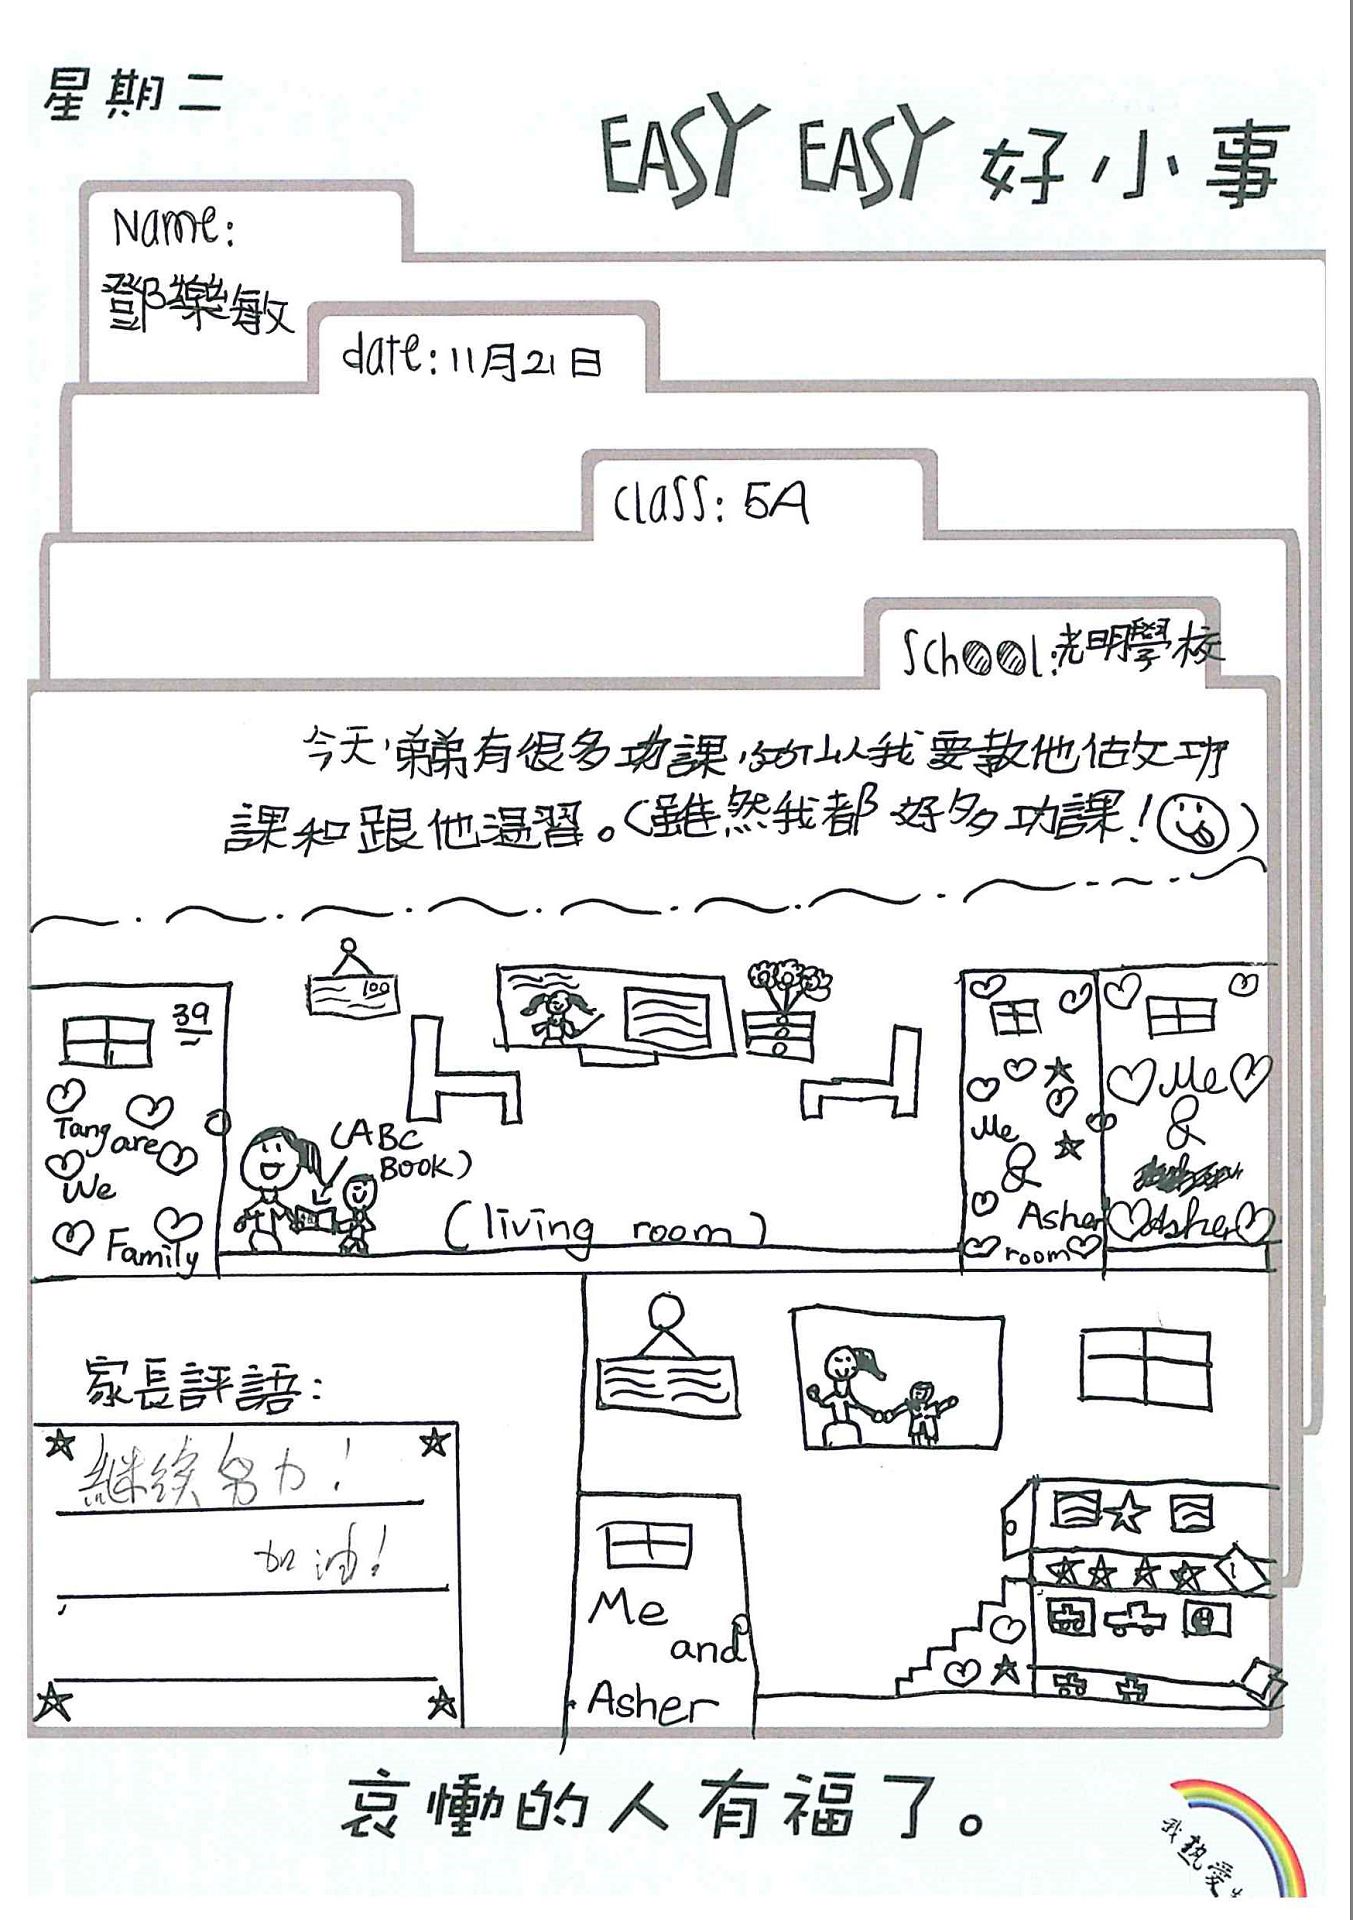 星期二
EASY EASY 好小事
Name:
鄧樂敏
date: 11月21日
Class: 5A
School: 光明學校
今天,弟弟有很多功課,所以我要教他做功
課和跟他溫習。(雖然我都好多功課!)
100
39
Tang are
We
Family
(ABC
BOOK)
(living room)
Me
&
Asher
room
Me
&
Asher
家長評語:
繼續努力!
加油!
Me
and
Asher
哀慟的人有福了。
我熱愛